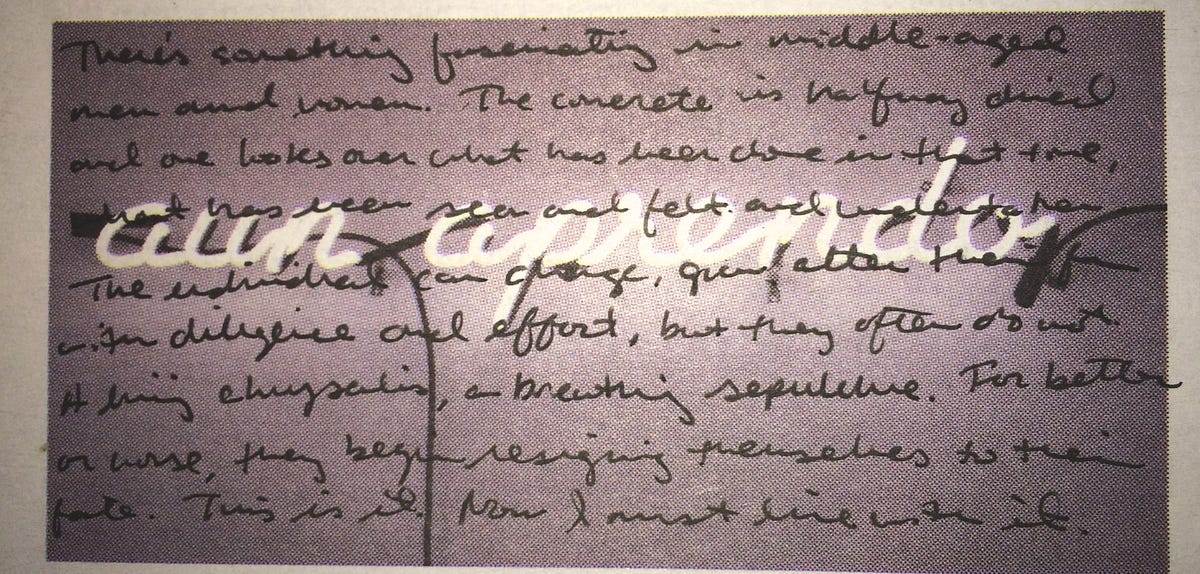 There's something fascinating in middle-aged
men and women. The concrete is halfway dried
and one looks over what has been done in that time,
what has been seen and felt and undertaken
aun aprendo
The individual can change, grow, alter their
with diligence and effort, but they often do not.
A living chrysalis, a breathing sepulchre. For better
or worse, they begin resigning themselves to their
fate. This is it. Now I must live with it.